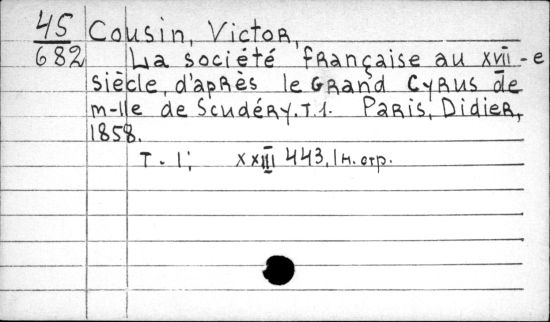 45 Cousin, Victor,
682 La société française au XVII-e
siècle, d'après le Grand Cyrus de
m-lle de Scudéry. T.1. Paris, Didier,
1858.
T. 1; XXIII 443, 1 н. отр.